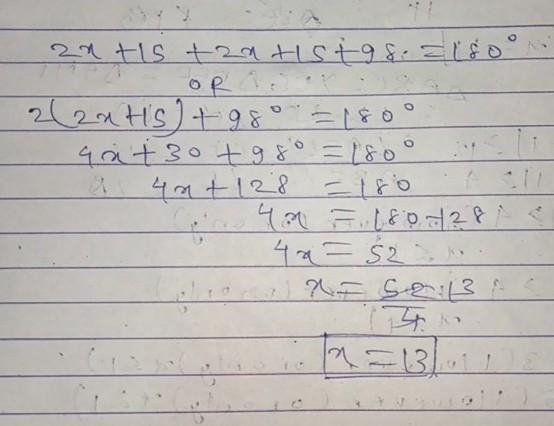 2x + 15 + 2x + 15 + 98. = 180°
OR
2(2x+15) + 98° = 180°
4x + 30 + 98° = 180°
4x + 128 = 180
4x = 180-128
4x = 52
x = 52 13
4
x = 13